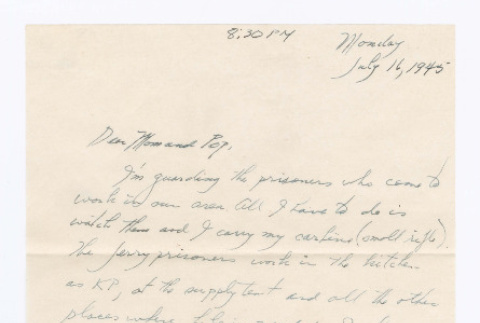 8:30 PM
Monday
July 16, 1945
Dear Mom and Pop,
I'm guarding the prisoners who come to
work in our area All I have to do is
watch them and I carry my carbine (small rifle).
The Jerry prisoners work in the kitchen
as KP, at the supply tent and all the other
places where